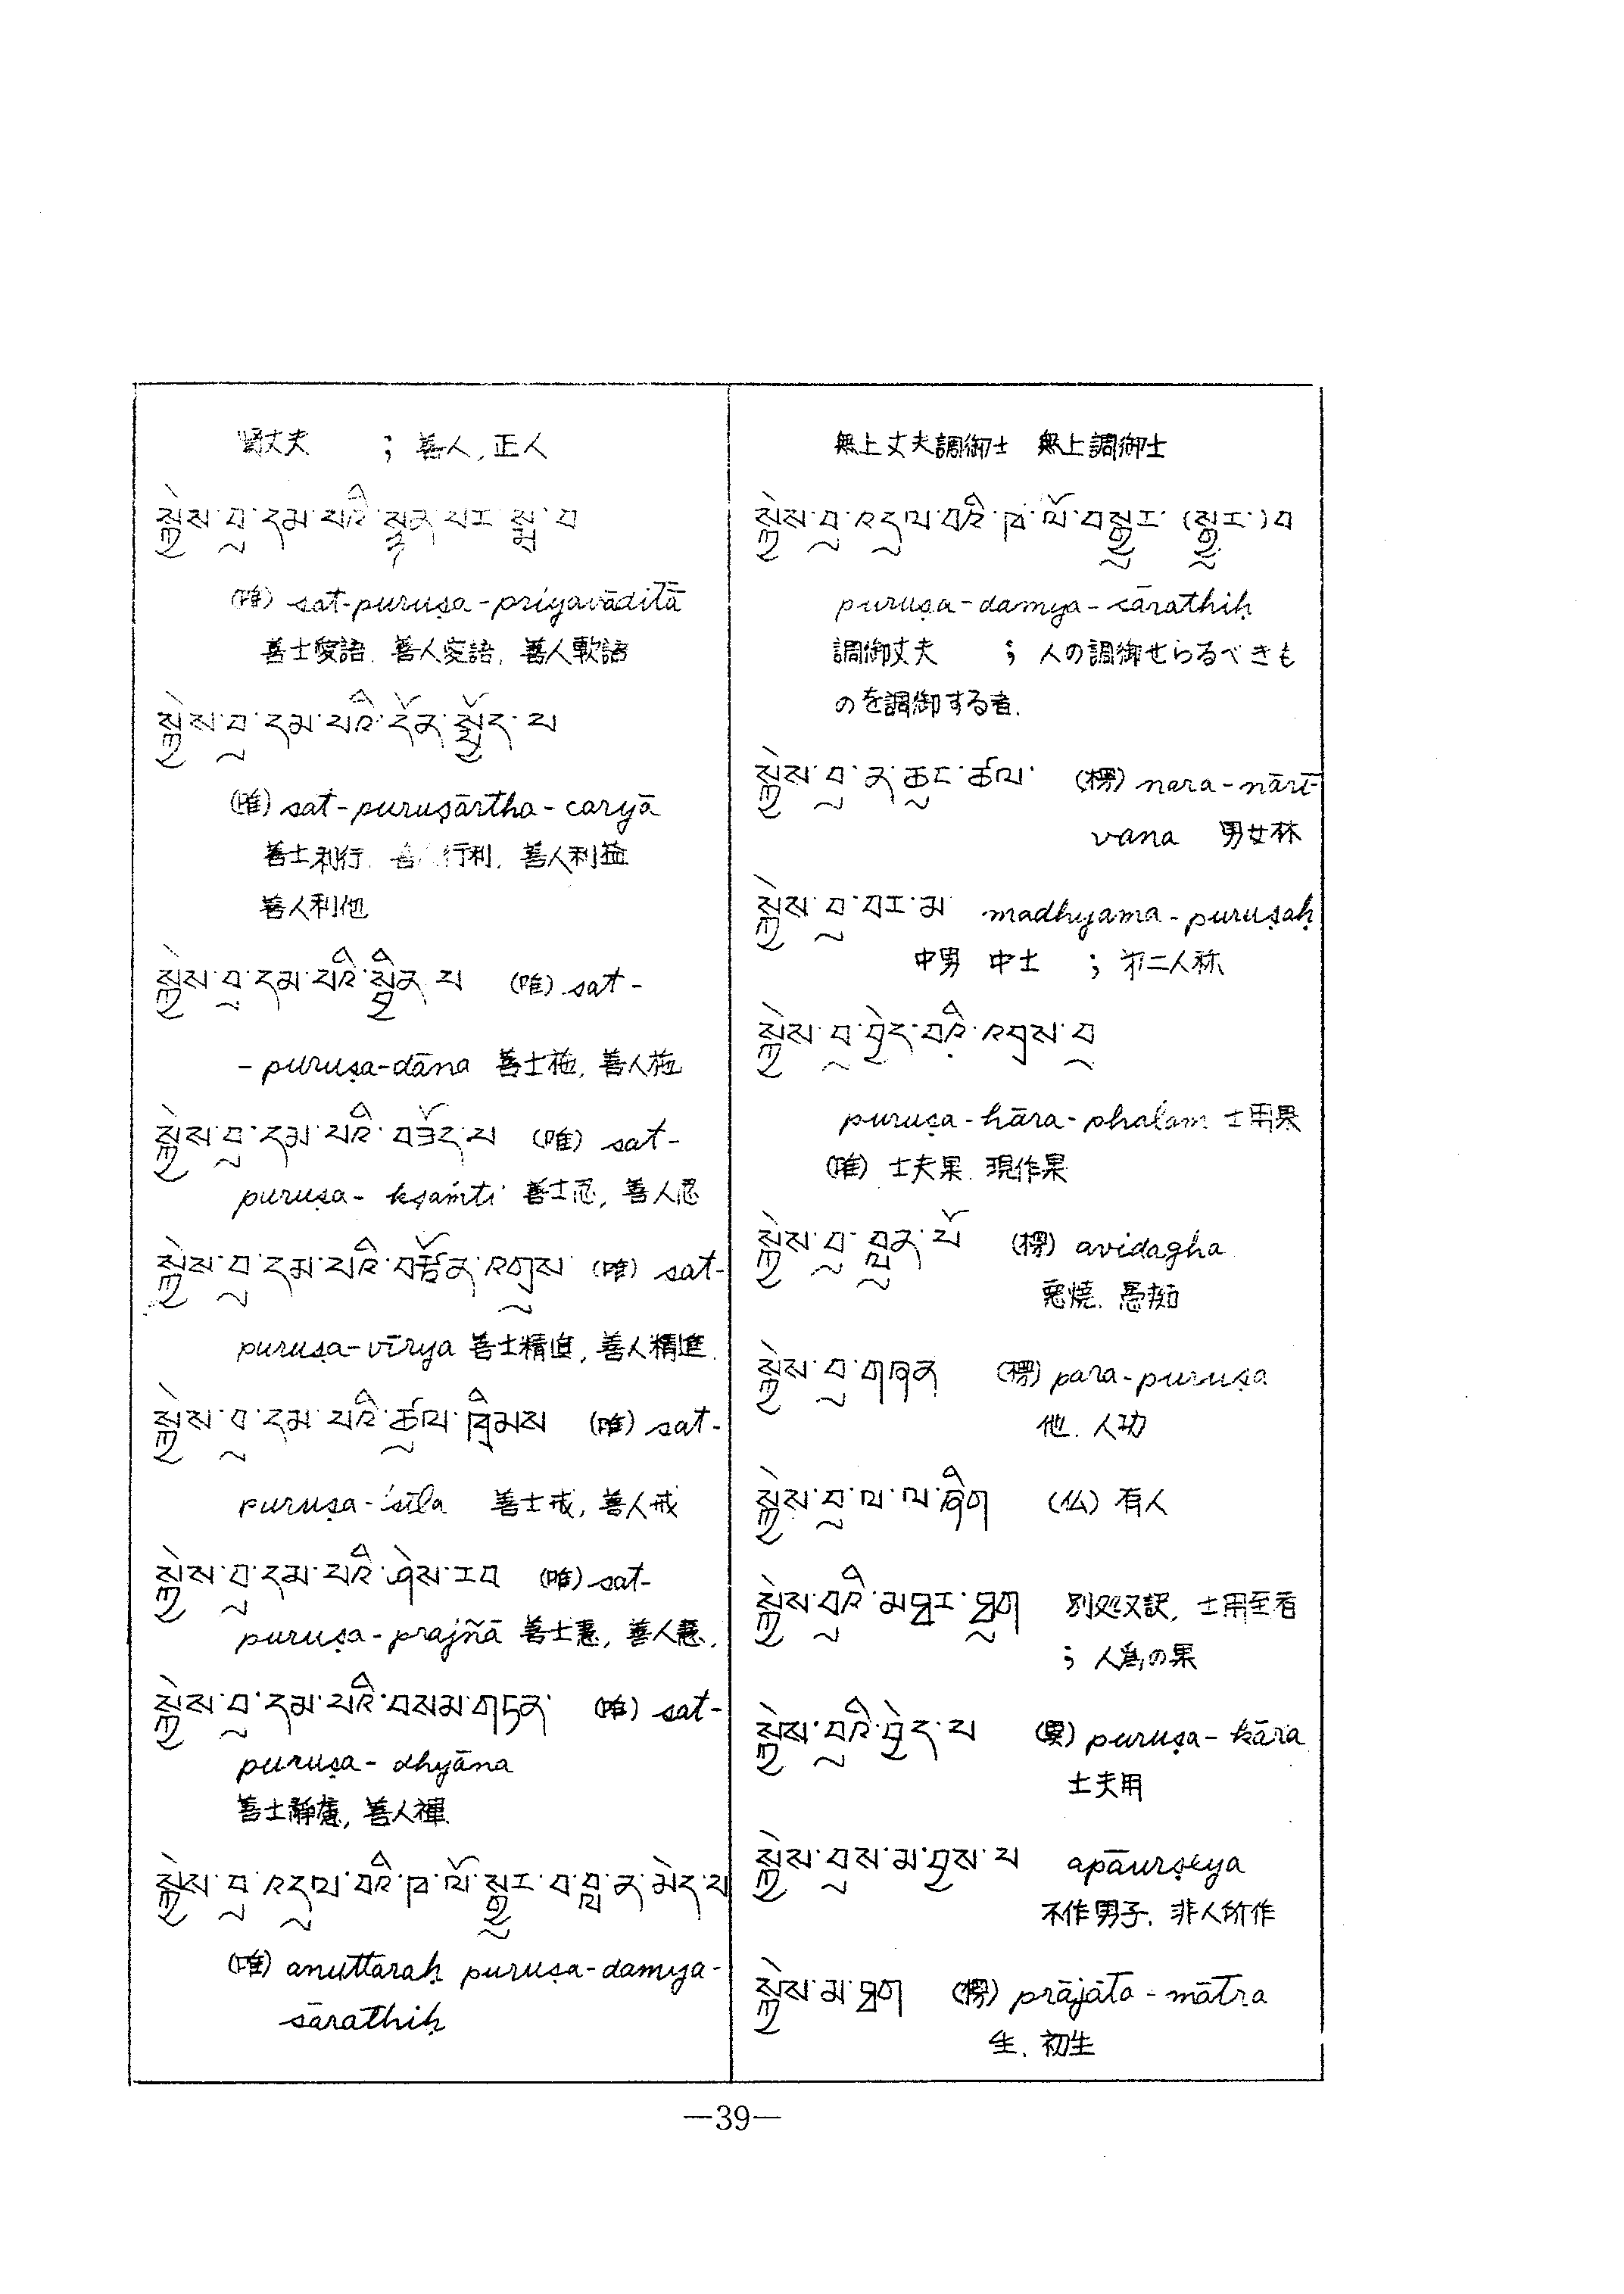 賢丈夫 ; 善人, 正人
སྐྱེས་བུ་དམ་པའི་སྙན་པར་སྨྲ་བ
(唯) sat-puruṣa-priyavāditā
善士愛語, 善人愛語, 善人軟語
སྐྱེས་བུ་དམ་པའི་དོན་སྤྱོད་པ
(唯) sat-puruṣārtha-caryā
善士利行, 行利, 善人利益
善人利他
སྐྱེས་བུ་དམ་པའི་སྦྱིན་པ (唯) sat-
-puruṣa-dāna 善士施, 善人施
སྐྱེས་བུ་དམ་པའི་བཟོད་པ (唯) sat-
puruṣa-kṣāṁti 善士忍, 善人忍
སྐྱེས་བུ་དམ་པའི་བརྩོན་འགྲུས (唯) sat-
puruṣa-vīrya 善士精進, 善人精進.
སྐྱེས་བུ་དམ་པའི་ཚུལ་ཁྲིམས (唯) sat-
puruṣa-śīla 善士戒, 善人戒
སྐྱེས་བུ་དམ་པའི་ཤེས་རབ (唯) sat-
puruṣa-prajñā 善士慧, 善人慧,
སྐྱེས་བུ་དམ་པའི་བསམ་གཏན་ (唯) sat-
puruṣa-dhyāna
善士靜慮, 善人禪
སྐྱེས་བུ་འདུལ་བའི་ཁ་ལོ་སྒྱུར་བ་བླ་ན་མེད་པ
(唯) anuttaraḥ puruṣa-damya-
sārathiḥ
無上丈夫調御士 無上調御士
སྐྱེས་བུ་འདུལ་བའི་ཁ་ལོ་བསྒྱུར་(སྒྱུར་)བ
puruṣa-damya-sārathiḥ
調御丈夫 ; 人の調御せらるべきも
のを調御する者.
སྐྱེས་བུ་ན་ཆུང་ཚལ་ (楞) nara-nārī-
vana 男女林
སྐྱེས་བུ་བར་མ madhyama-puruṣaḥ
中男 中士 ; 第二人称
སྐྱེས་བུ་བྱེད་བའི་འབྲས་བུ
puruṣa-hāra-phalam 士用果
(唯) 士夫果. 現作果
སྐྱེས་བུ་བླུན་པོ (楞) avidagha
悪燒. 愚痴
སྐྱེས་བུ་གཞན (楞) para-puruṣa
他. 人功
སྐྱེས་བུ་ལ་ལ་ཞིག (仏) 有人
སྐྱེས་བུའི་མཐར་ཐུག 別処又訳, 士用至看
; 人為の果
སྐྱེས་བུའི་བྱེད་པ (異) puruṣa-kāra
士夫用
སྐྱེས་བུས་མ་བྱས་པ apāurṣeya
不作男子, 非人所作
སྐྱེས་མ་ཐག (楞) prājāta-mātra
生. 初生
—39—